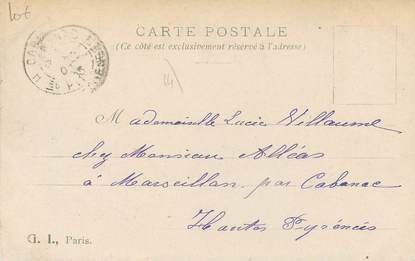 Lot
CARTE POSTALE
(Ce côté est exclusivement réservé à l'adresse)
Mademoiselle Lucie Villaume
chez Monsieur Alléas
à Marseillan par Cabanac
Hautes Pyrénées
G. I., Paris.